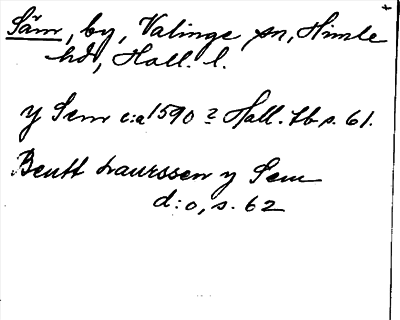 Säm, by, Valinge sn, Himle
hd, Hall. l.
y Sem c:a 1590 ? Hall. tb s. 61.
Bentt Laurssen y Sem
d:o, s. 62